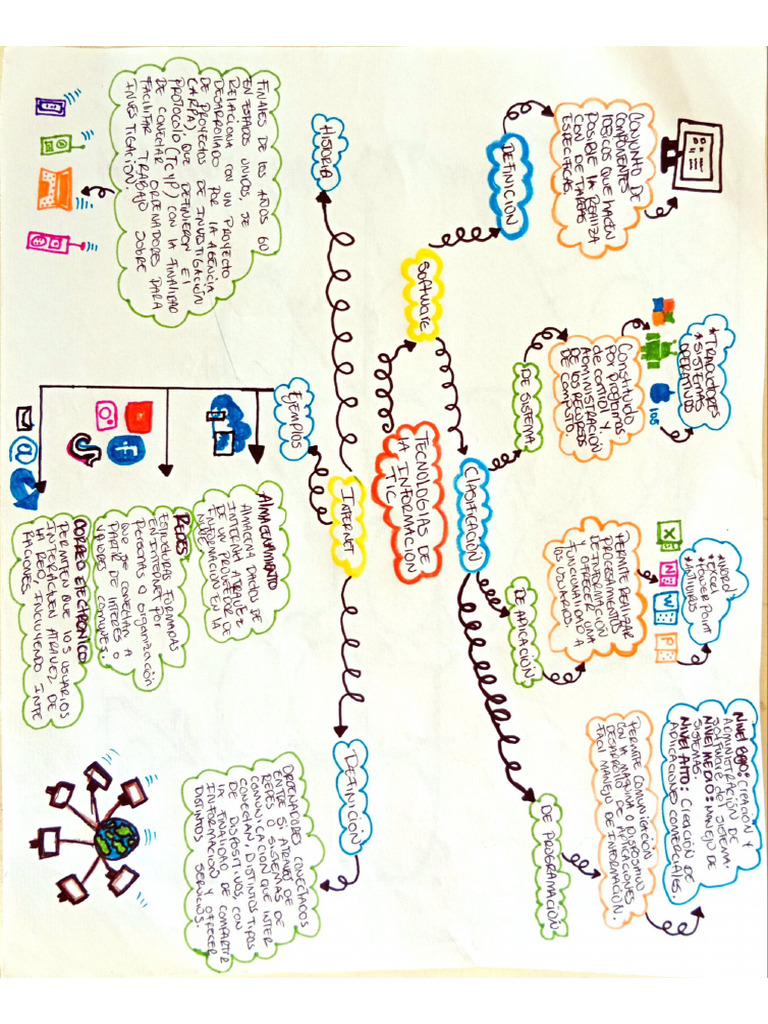 TECNOLOGÍAS DE
LA INFORMACIÓN
TIC
SOFTWARE
DEFINICIÓN
CONJUNTO DE
COMPONENTES
LÓGICOS QUE HACEN
POSIBLE LA REALIZA
CIÓN DE TAREAS
ESPECÍFICAS
CLASIFICACIÓN
DE SISTEMA
Constituido
por programas
de control y
ADMINISTRACIÓN
DE LOS RECURSOS
DE COMPUTO.
*TRADUCTORES
*SISTEMAS
OPERATIVOS
IOS
DE APLICACIÓN
PERMITE REALIZAR
PROCESAMIENTO
DE INFORMACIÓN
Y OFRECER UNA
FUNCIONALIDAD A
LOS USUARIOS.
*WORD
*EXCEL
*POWER POINT
*ANTIVIRUS
X
N
W
P
DE PROGRAMACIÓN
PERMITE COMUNICACIÓN
CON LA MAQUINA O DISPOSITIVO
DESARROLLO DE APLICACIONES
FACIL MANEJO DE INFORMACIÓN.
NIVEL BAJO: CREACIÓN Y
ADMINISTRACIÓN DE
SOFTWARE del SISTEMA.
NIVEL MEDIO: MANEJO DE
SISTEMAS.
NIVEL ALTO: CREACIÓN DE
APLICACIONES COMERCIALES.
INTERNET
HISTORIA
FINALES DE LOS AÑOS 60
EN ESTADOS UNIDOS, SE
RELACIONA CON UN PROYECTO
DESARROLLADO POR LA AGENCIA
DE PROYECTOS DE INVESTIGACIÓN
(ARPA), QUE DEFINIERON EL
PROTOCOLO (TCyP) CON LA FINALIDAD
DE CONECTAR ORDENADORES PARA
FACILITAR TRABAJO SOBRE
INVESTIGACIÓN.
EJEMPLOS
ALMACENAMIENTO
ALMACENA DATOS DE
INTERNET ATRAVEZ
DE UN PROVEEDOR DE
INFORMACIÓN EN LA
NUBE
REDES
ESTRUCTURAS FORMADAS
EN INTERNET POR
PERSONAS O ORGANIZACIÓN
QUE SE CONECTAN A
PARTIR DE INTERÉS O
VALORES COMUNES.
f
CORREO ELECTRONICO
PERMITEN QUE LOS USUARIOS
INTERACTUEN ATRAVEZ DE
LA RED, INCLUYENDO INTE
RACIONES.
@
DEFINICIÓN
ORDENADORES CONECTADOS
ENTRE SÍ ATRAVÉZ DE
REDES O SISTEMAS DE
COMUNICACIÓN QUE INTER
CONECTAN, DISTINTOS TIPOS
DE DISPOSITIVOS, CON
LA FINALIDAD DE COMPARTIR
INFORMACIÓN Y OFRECER
DISTINTOS SERVICIOS.